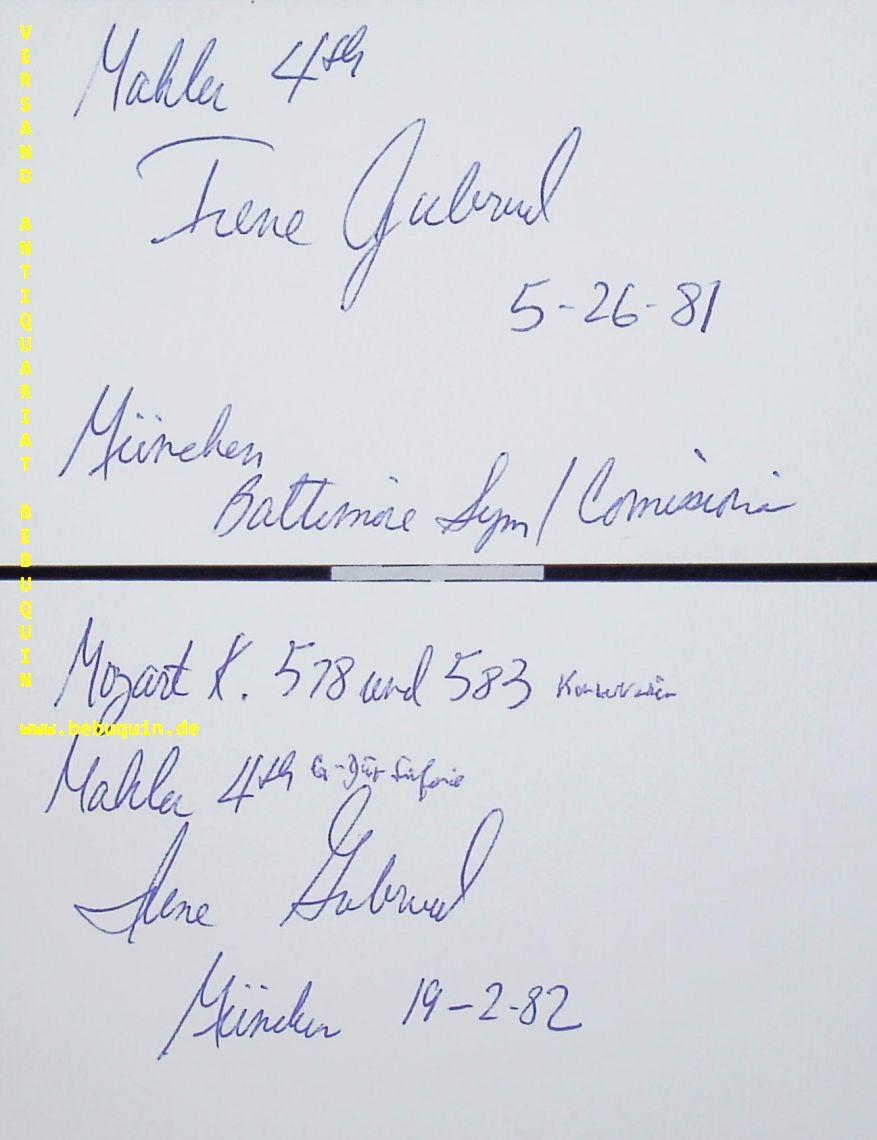 Mahler 4th
Irene Gubrud
5-26-81
München
Baltimore Sym/Comissiona
Mozart K. 578 und 583
Mahler 4th G-Dur Sinfonie
Irene Gubrud
München 19-2-82
VERSAND ANTIQUARIAT BEBUQUIN
www.bebuquin.de